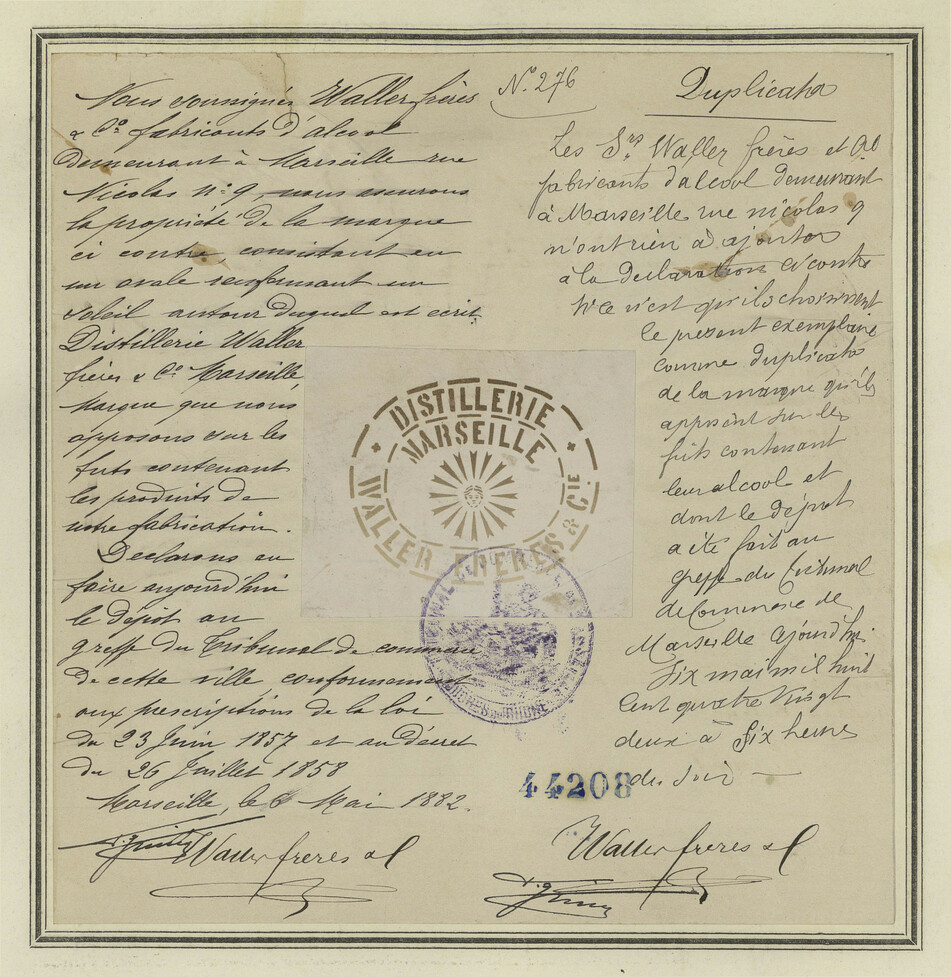 Nous soussignés Waller frères
& Cº fabricants d'alcool
demeurant à Marseille rue
Nicolas nº 9, nous assurons
la propriété de la marque
ci contre, consistant en
un ovale renfermant un
soleil autour duquel est écrit,
Distillerie Waller
frères & Cº Marseille,
Marque que nous
apposons sur les
futs contenant
les produits de
notre fabrication.
Declarons en
faire aujourd'hui
le dépôt au
greffe du Tribunal de commerce
de cette ville conformement
aux prescriptions de la loi
du 23 Juin 1857 et au décret
du 26 Juillet 1858
Marseille, le 6 Mai 1882.
Waller freres et
Nº 276
Duplicata
Les Srs Waller frères et Co
fabricants d'alcool demeurant
à Marseille rue nicolas 9
n'ont rien à ajouter
à la declaration ci contre
si ce n'est qu'ils choisissent
le present exemplaire
comme duplicata
de la marque qu'ils
apposent sur les
futs contenant
leur alcool et
dont le dépôt
a été fait au
greffe du Tribunal
de Commerce de
Marseille ajourd'hui
six mai mil huit
cent quatre vingt
deux à six heures
du soir
Waller freres et
DISTILLERIE
MARSEILLE
WALLER FRERES & CIE
44208